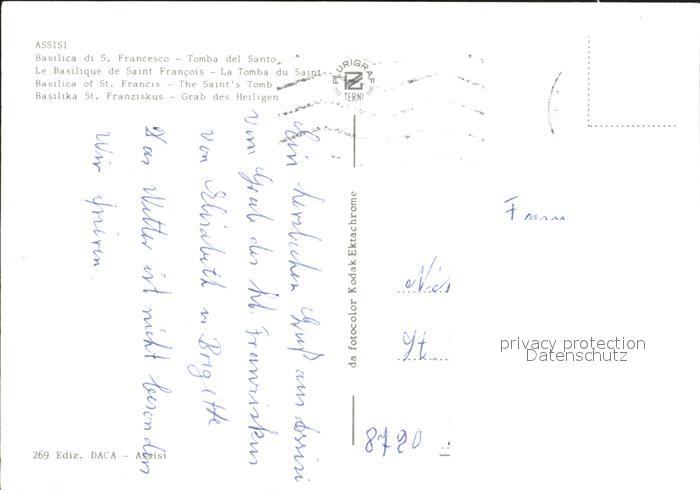 ASSISI
Basilica di S. Francesco - Tomba del Santo
Le Basilique de Saint François - La Tomba du Saint
Basilica of St. Francis - The Saint's Tomb
Basilika St. Franziskus - Grab des Heiligen
PLURIGRAF
TERNI
Ein herzlichen Gruß aus Assisi
vom Grab des hl. Franziskus
von Elisabeth u Brigitte
Das Wetter ist nicht besonders
Wir frieren.
da fotocolor Kodak Ektachrome
8720
privacy protection
Datenschutz
269 Ediz. DACA - Assisi